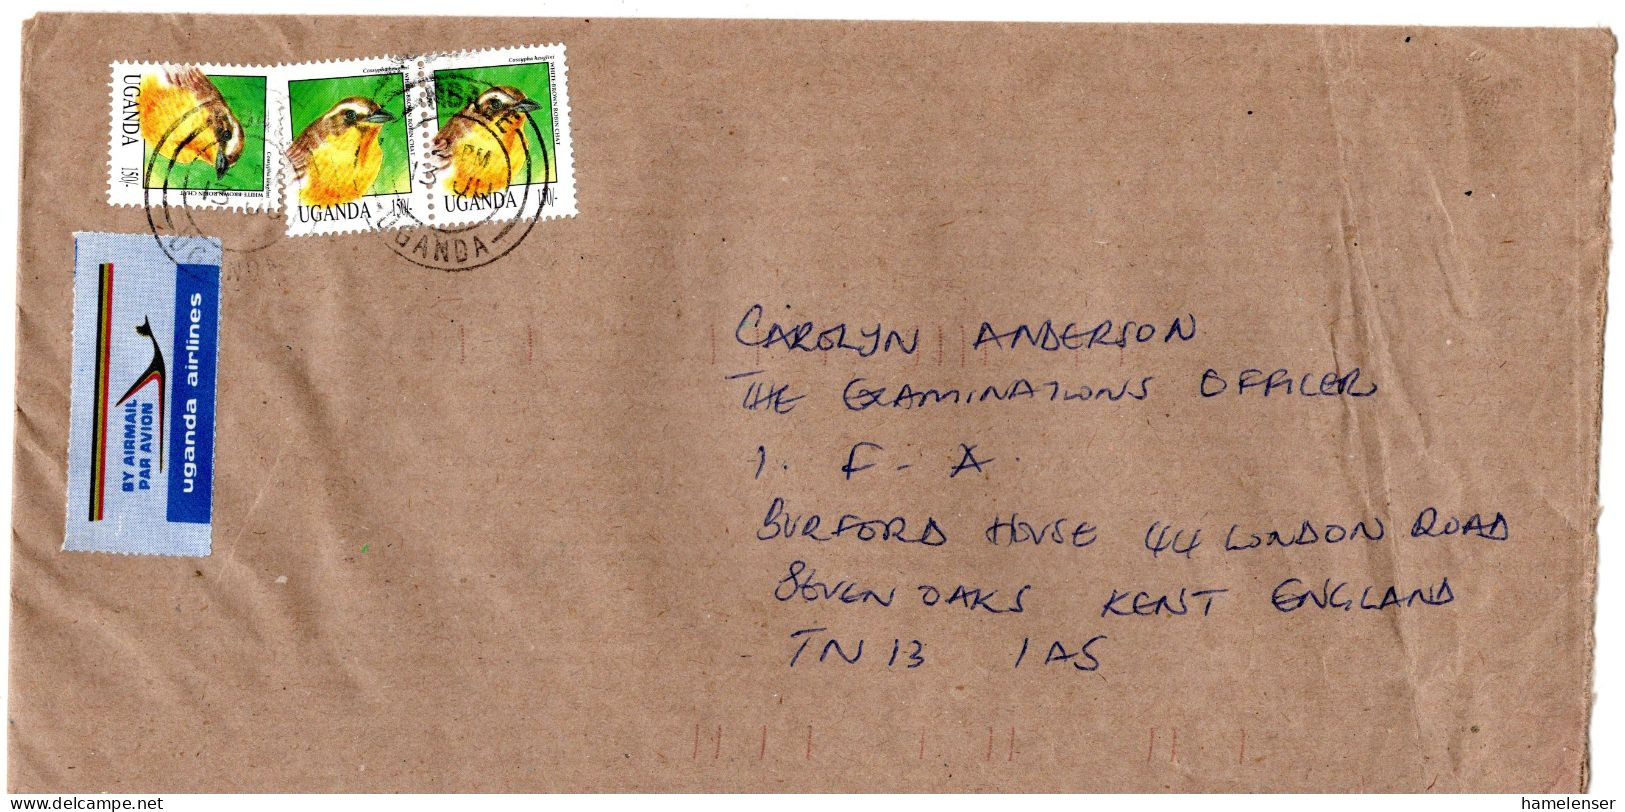 UGANDA
150/-
WHITE-BROWN ROBIN CHAT
Cossypha heuglini
UGANDA
150/-
WHITE-BROWN ROBIN CHAT
Cossypha heuglini
UGANDA
150/-
PM
13 JU
UGANDA
BY AIRMAIL
PAR AVION
uganda airlines
CAROLYN ANDERSON
THE EXAMINATIONS OFFICER
I. F - A.
BURFORD HOUSE 44 LONDON ROAD
SEVEN OAKS KENT ENGLAND
TN 13 1AS
www.delcampe.net
hamelenser